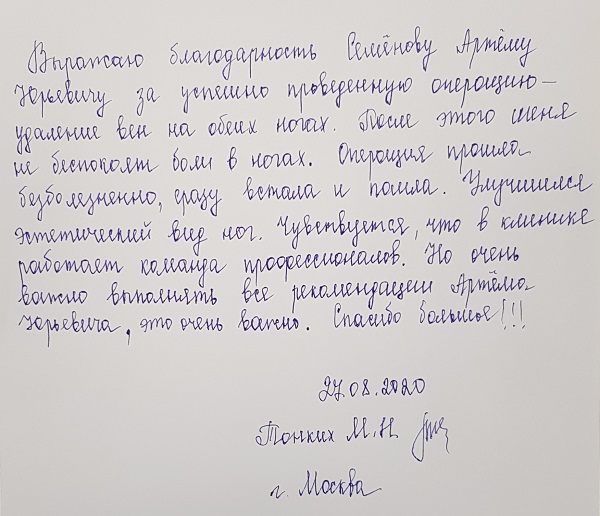 Выражаю благодарность Семёнову Артёму
Юрьевичу за успешно проведенную операцию –
удаление вен на обеих ногах. После этого меня
не беспокоят боли в ногах. Операция прошла
безболезненно, сразу встала и пошла. Улучшился
эстетический вид ног. Чувствуется, что в клинике
работает команда профессионалов. Но очень
важно выполнять все рекомендации Артёма
Юрьевича, это очень важно. Спасибо большое!!!
27.08.2020
Тонких М.Н.
г. Москва